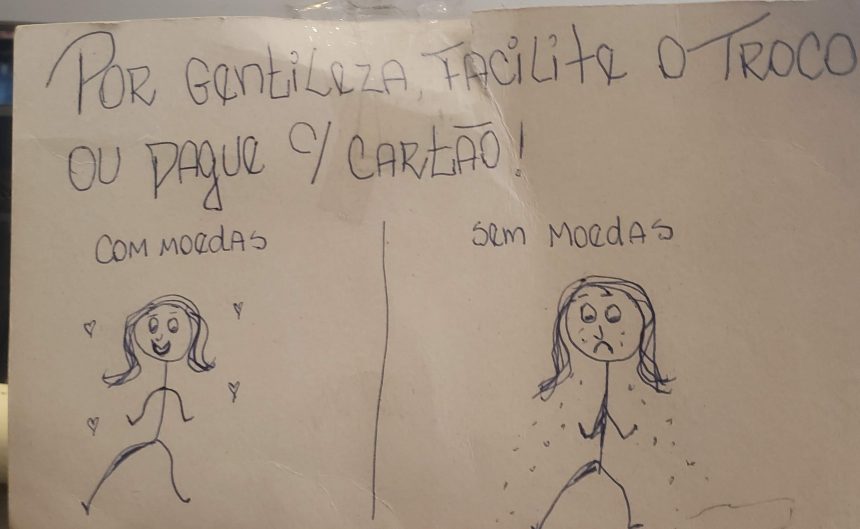 POR GENTILEZA, FACILITE O TROCO
OU PAGUE C/ CARTÃO!
COM MOEDAS
SEM MOEDAS